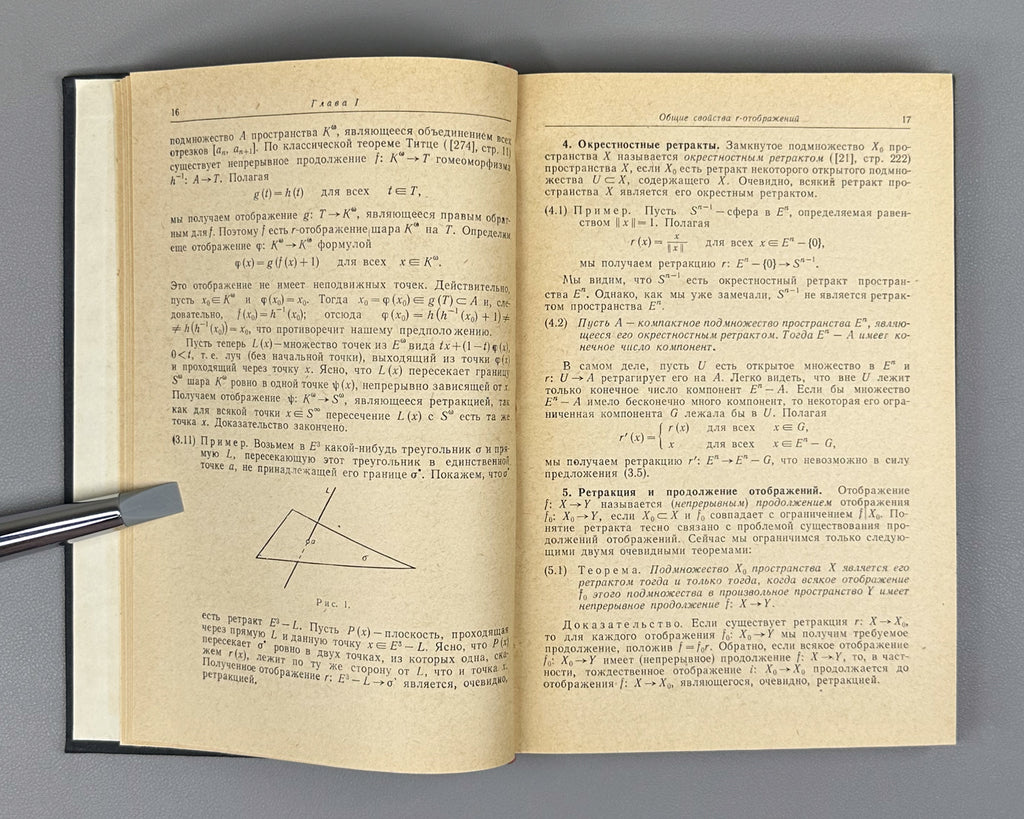 16
Глава I
подмножество A пространства Kω, являющееся объединением всех
отрезков [aₙ, aₙ₊₁]. По классической теореме Титце ([274], стр. 11)
существует непрерывное продолжение f: Kω → T гомеоморфизма
h⁻¹: A → T. Полагая
g(t) = h(t) для всех t ∈ T,
мы получаем отображение g: T → Kω, являющееся правым обрат-
ным для f. Поэтому f есть r-отображение шара Kω на T. Определим
еще отображение φ: Kω → Kω формулой
φ(x) = g(f(x) + 1) для всех x ∈ Kω.
Это отображение не имеет неподвижных точек. Действительно,
пусть x₀ ∈ Kω и φ(x₀) = x₀. Тогда x₀ = φ(x₀) ∈ g(T) ⊂ A и, сле-
довательно, f(x₀) = h⁻¹(x₀); отсюда φ(x₀) = h(h⁻¹(x₀) + 1) ≠
≠ h(h⁻¹(x₀)) = x₀, что противоречит нашему предположению.
Пусть теперь L(x) — множество точек из Eω вида tx + (1 — t) φ(x),
0 < t, т. е. луч (без начальной точки), выходящий из точки φ(x)
и проходящий через точку x. Ясно, что L(x) пересекает границу
Sω шара Kω ровно в одной точке ψ(x), непрерывно зависящей от x.
Получаем отображение ψ: Kω → Sω, являющееся ретракцией, так
как для всякой точки x ∈ S∞ пересечение L(x) с Sω есть та же
точка x. Доказательство закончено.
(3.11) Пример. Возьмем в E³ какой-нибудь треугольник σ и пря-
мую L, пересекающую этот треугольник в единственной
точке a, не принадлежащей его границе σ•. Покажем, что σ•
L
a
σ
Рис. 1.
есть ретракт E³ — L. Пусть P(x) — плоскость, проходящая
через прямую L и данную точку x ∈ E³ — L. Ясно, что P(x)
пересекает σ• ровно в двух точках, из которых одна, ска-
жем r(x), лежит по ту же сторону от L, что и точка x.
Полученное отображение r: E³ — L → σ• является, очевидно,
ретракцией.
Общие свойства r-отображений
17
4. Окрестностные ретракты. Замкнутое подмножество X₀ про-
странства X называется окрестностным ретрактом ([21], стр. 222)
пространства X, если X₀ есть ретракт некоторого открытого подмно-
жества U ⊂ X, содержащего X. Очевидно, всякий ретракт про-
странства X является его окрестным ретрактом.
(4.1) Пример. Пусть Sⁿ⁻¹ — сфера в Eⁿ, определяемая равен-
ством ‖x‖ = 1. Полагая
r(x) = x/‖x‖ для всех x ∈ Eⁿ — {0},
мы получаем ретракцию r: Eⁿ — {0} → Sⁿ⁻¹.
Мы видим, что Sⁿ⁻¹ есть окрестностный ретракт простран-
ства Eⁿ. Однако, как мы уже замечали, Sⁿ⁻¹ не является ретрак-
том пространства Eⁿ.
(4.2) Пусть A — компактное подмножество пространства Eⁿ, являю-
щееся его окрестностным ретрактом. Тогда Eⁿ — A имеет ко-
нечное число компонент.
В самом деле, пусть U есть открытое множество в Eⁿ и
r: U → A ретрагирует его на A. Легко видеть, что вне U лежит
только конечное число компонент Eⁿ — A. Если бы множество
Eⁿ — A имело бесконечно много компонент, то некоторая его огра-
ниченная компонента G лежала бы в U. Полагая
r′(x) = { r(x) для всех x ∈ G,
x для всех x ∈ Eⁿ — G,
мы получаем ретракцию r′: Eⁿ → Eⁿ — G, что невозможно в силу
предложения (3.5).
5. Ретракция и продолжение отображений. Отображение
f: X → Y называется (непрерывным) продолжением отображения
f₀: X₀ → Y, если X₀ ⊂ X и f₀ совпадает с ограничением f | X₀. По-
нятие ретракта тесно связано с проблемой существования про-
должений отображений. Сейчас мы ограничимся только следую-
щими двумя очевидными теоремами:
(5.1) Теорема. Подмножество X₀ пространства X является его
ретрактом тогда и только тогда, когда всякое отображение
f₀ этого подмножества в произвольное пространство Y имеет
непрерывное продолжение f: X → Y.
Доказательство. Если существует ретракция r: X → X₀,
то для каждого отображения f₀: X₀ → Y мы получим требуемое
продолжение, положив f = f₀r. Обратно, если всякое отображение
f₀: X₀ → Y имеет (непрерывное) продолжение f: X → Y, то, в част-
ности, тождественное отображение i: X₀ → X₀ продолжается до
отображения f: X → X₀, являющегося, очевидно, ретракцией.